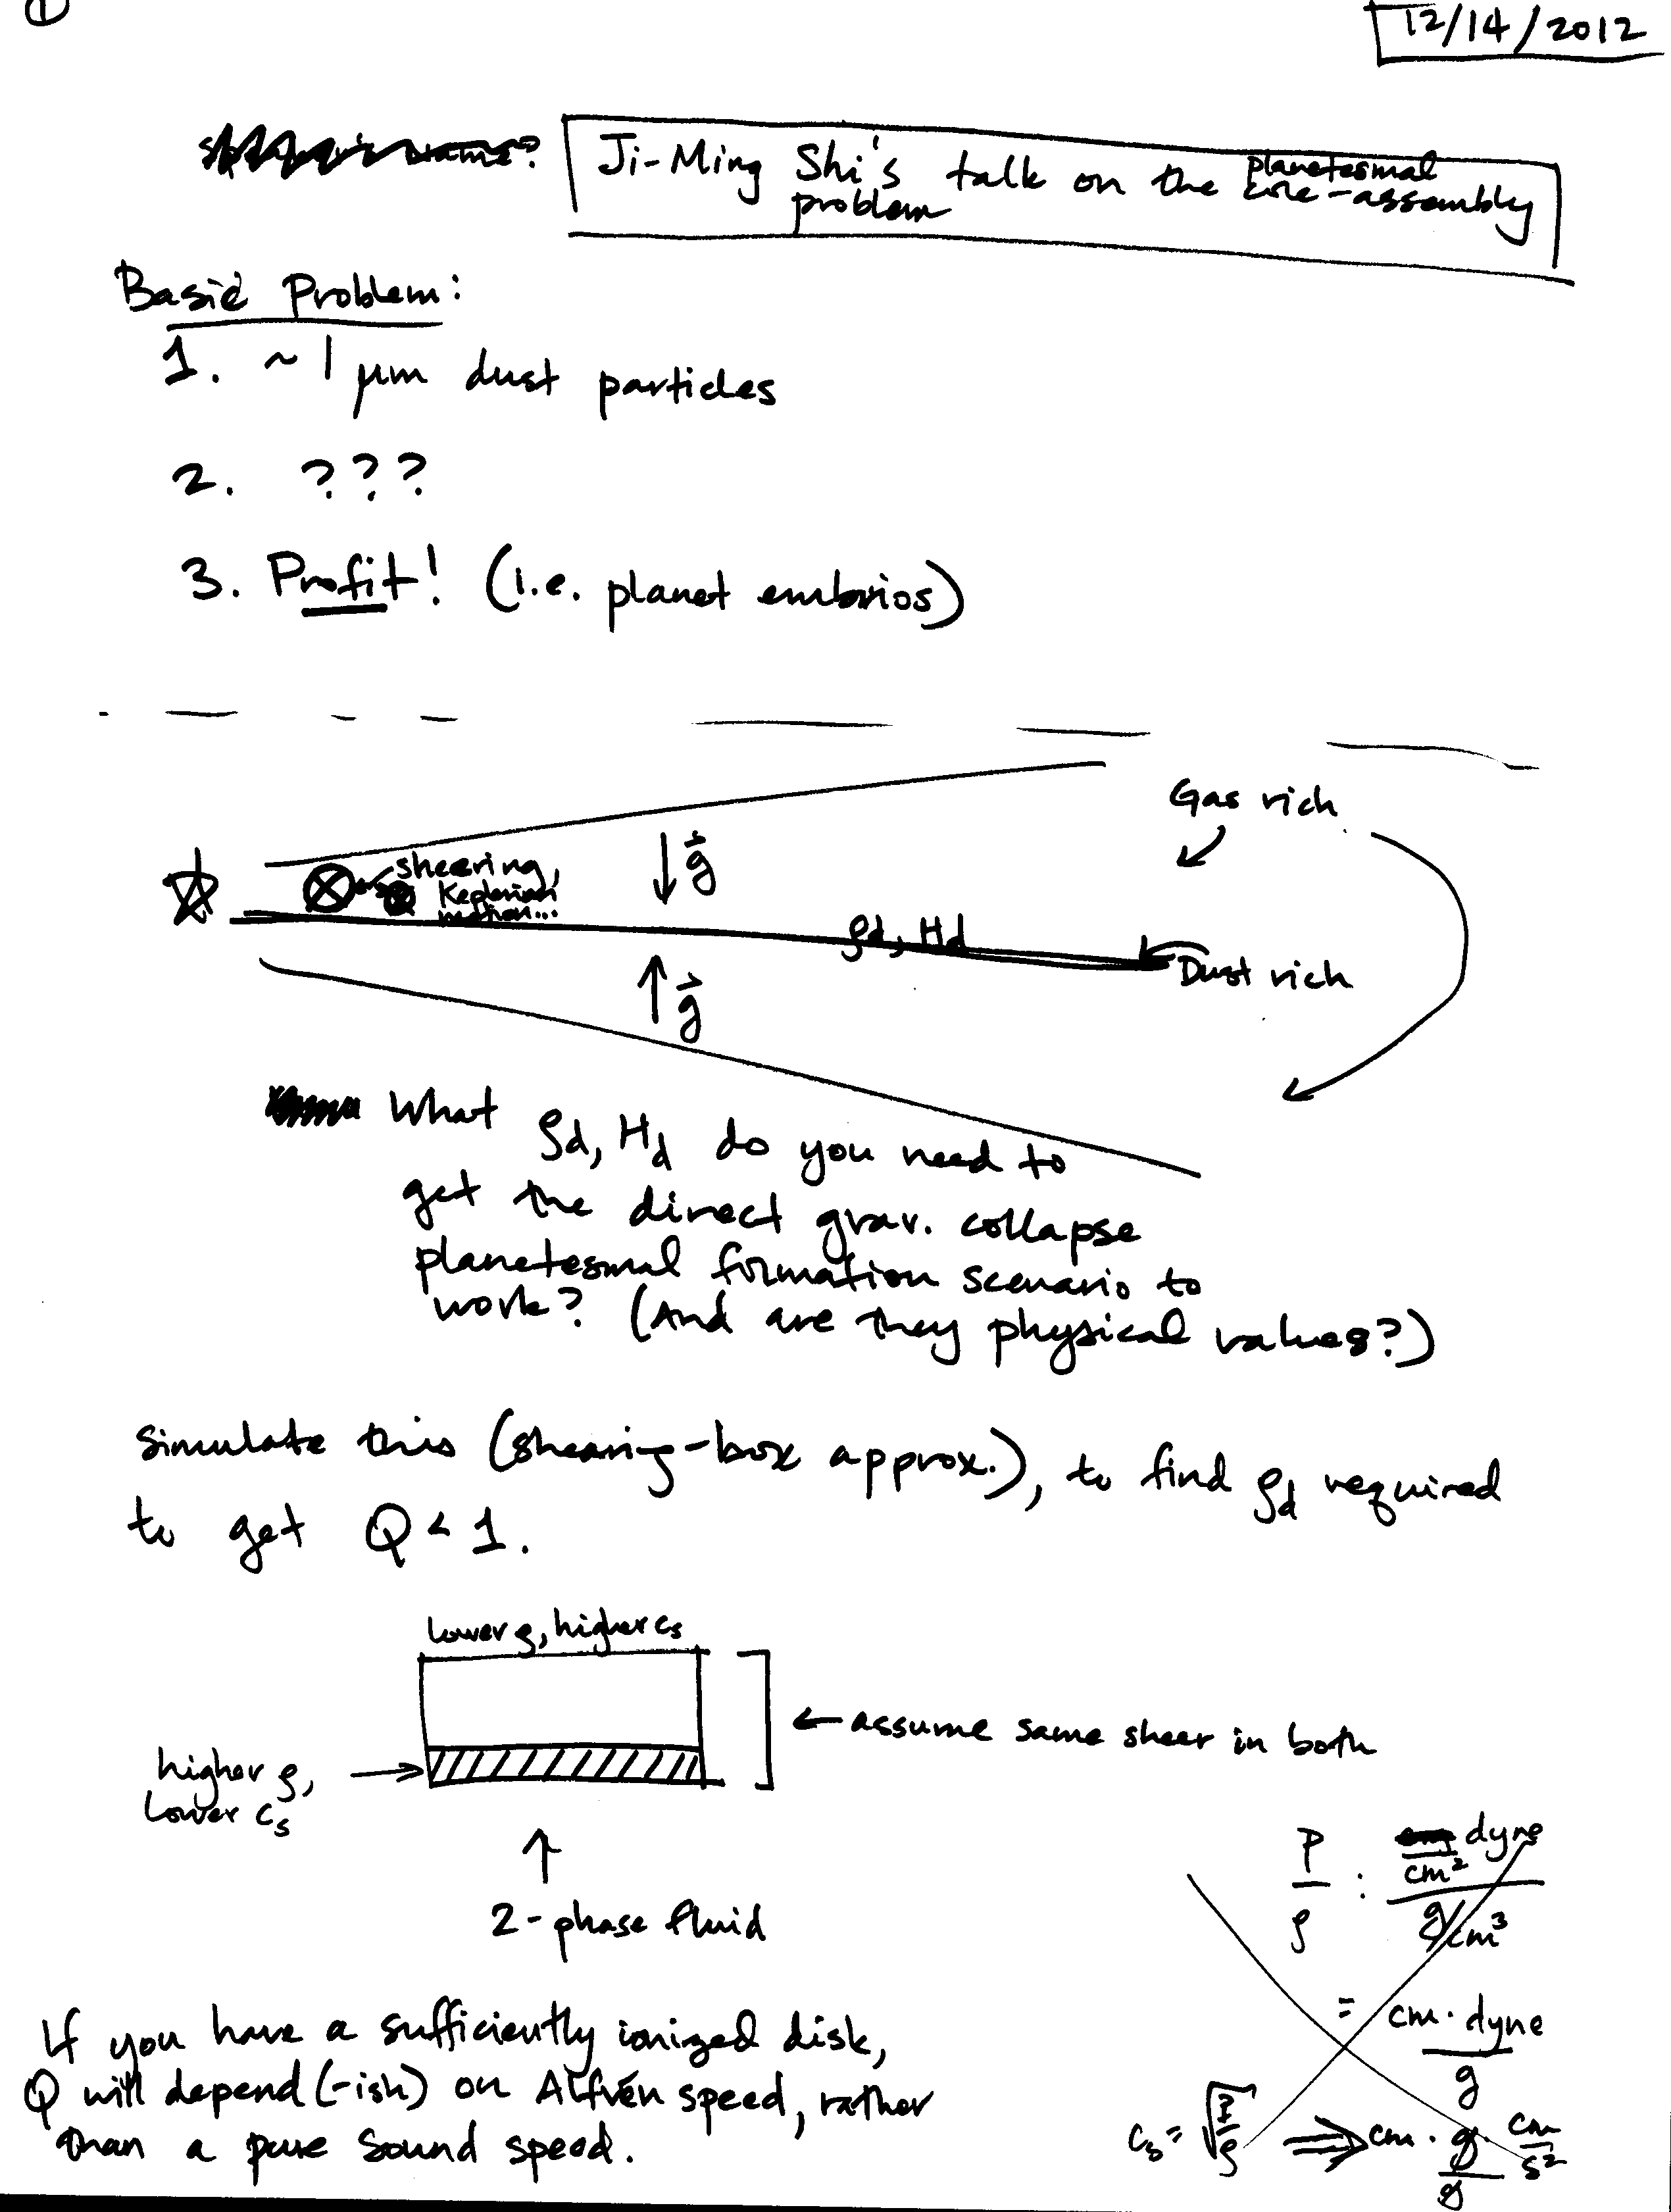 ①
12/14/2012
name?
Ji-Ming Shi's talk on the planetesmal core-assembly
problem
Basic Problem:
1. ~1 μm dust particles
2. ???
3. Profit! (i.e. planet embrios)
Gas rich
sheering,
Keplerian
motion...
g⃗
ρd, Hd
Dust rich
g⃗
What ρd, Hd do you need to
get the direct grav. collapse
planetesmal formation scenario to
work? (And are they physical values?)
Simulate this (shearing-box approx.), to find ρd required
to get Q < 1.
lower ρ, higher cs
← assume same sheer in both
higher ρ,
Lower cs
2-phase fluid
P/ρ : dyne/cm² / g/cm³
= cm · dyne / g
If you have a sufficiently ionized disk,
Q will depend (-ish) on Alfvén speed, rather
than a pure sound speed.
cs = √(P/ρ) ⇒ cm · g/g cm/s²